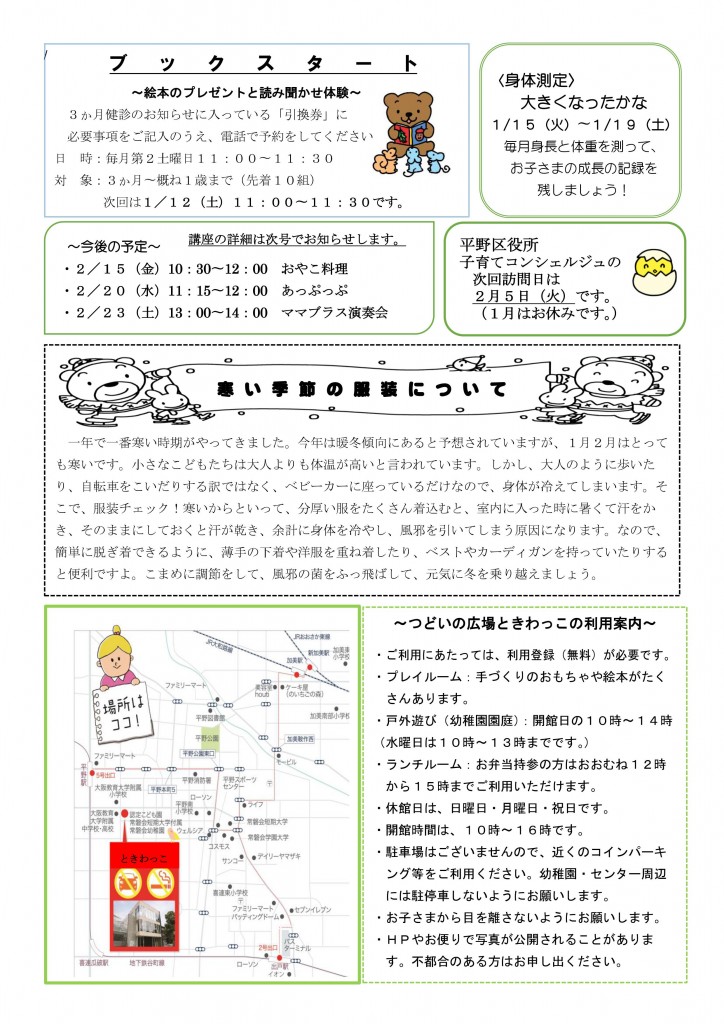 ブックスタート
～絵本のプレゼントと読み聞かせ体験～
３か月健診のお知らせに入っている「引換券」に
必要事項をご記入のうえ、電話で予約をしてください
日　時：毎月第２土曜日１１：００～１１：３０
対　象：３か月～概ね１歳まで（先着１０組）
次回は１／１２（土）１１：００～１１：３０です。
〈身体測定〉
大きくなったかな
１/１５（火）～１/１９（土）
毎月身長と体重を測って、
お子さまの成長の記録を
残しましょう！
～今後の予定～　講座の詳細は次号でお知らせします。
・２／１５（金）10：30～12：00　おやこ料理
・２／２０（水）11：15～12：00　あっぷっぷ
・２／２３（土）13：00～14：00　ママブラス演奏会
平野区役所
子育てコンシェルジュの
次回訪問日は
２月５日（火）です。
（１月はお休みです。）
寒い季節の服装について
一年で一番寒い時期がやってきました。今年は暖冬傾向にあると予想されていますが、１月２月はとって
も寒いです。小さなこどもたちは大人よりも体温が高いと言われています。しかし、大人のように歩いた
り、自転車をこいだりする訳ではなく、ベビーカーに座っているだけなので、身体が冷えてしまいます。そ
こで、服装チェック！寒いからといって、分厚い服をたくさん着込むと、室内に入った時に暑くて汗をか
き、そのままにしておくと汗が乾き、余計に身体を冷やし、風邪を引いてしまう原因になります。なので、
簡単に脱ぎ着できるように、薄手の下着や洋服を重ね着したり、ベストやカーディガンを持っていたりする
と便利ですよ。こまめに調節をして、風邪の菌をふっ飛ばして、元気に冬を乗り越えましょう。
場所は
ココ！
JR大和路線
JRおおさか東線
新加美駅
加美駅
加美東
小学校
ファミリーマート
美容室
houti
ケーキ屋
(のいちごの森)
平野図書館
加美南部小学校
平野公園
加美鞍作西
平野公園東口
モービル
ファミリーマート
平野駅
5号出口
平野消防署
平野スポーツ
センター
大阪教育大学附属
小学校
平野本町5
ローソン
ライフ
大阪教育
大学附属
中学校・高校
認定こども園
常磐会短期大学付属
常磐会幼稚園
平野南
小学校
ウェルシア
常磐会短期大学
常磐会学園大学
コスモス
サンコー
デイリーヤマザキ
ときわっこ
喜連東小学校
ファミリーマート
バッティングドーム
セブンイレブン
2号出口
バス
ターミナル
ローソン
出戸駅
イオン
喜連瓜破駅
地下鉄谷町線
～つどいの広場ときわっこの利用案内～
・ご利用にあたっては、利用登録（無料）が必要です。
・プレイルーム：手づくりのおもちゃや絵本がたく
さんあります。
・戸外遊び（幼稚園園庭）：開館日の１０時～１４時
（水曜日は１０時～１３時までです。）
・ランチルーム：お弁当持参の方はおおむね１２時
から１５時までご利用いただけます。
・休館日は、日曜日・月曜日・祝日です。
・開館時間は、１０時～１６時です。
・駐車場はございませんので、近くのコインパーキ
ング等をご利用ください。幼稚園・センター周辺
には駐停車しないようにお願いします。
・お子さまから目を離さないようにお願いします。
・ＨＰやお便りで写真が公開されることがありま
す。不都合のある方はお申し出ください。